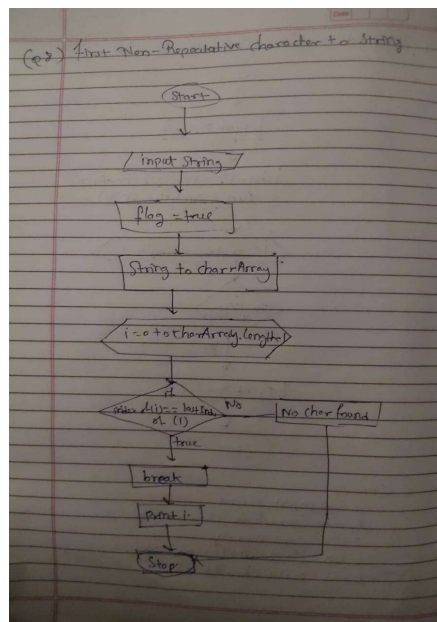 First Non-Repeatative character to String
Start
input String
flag = true
String to charArray
i = 0 to charArray.length
if
(i) == last Ind
of (i)
No
No char found
true
break
print i
Stop